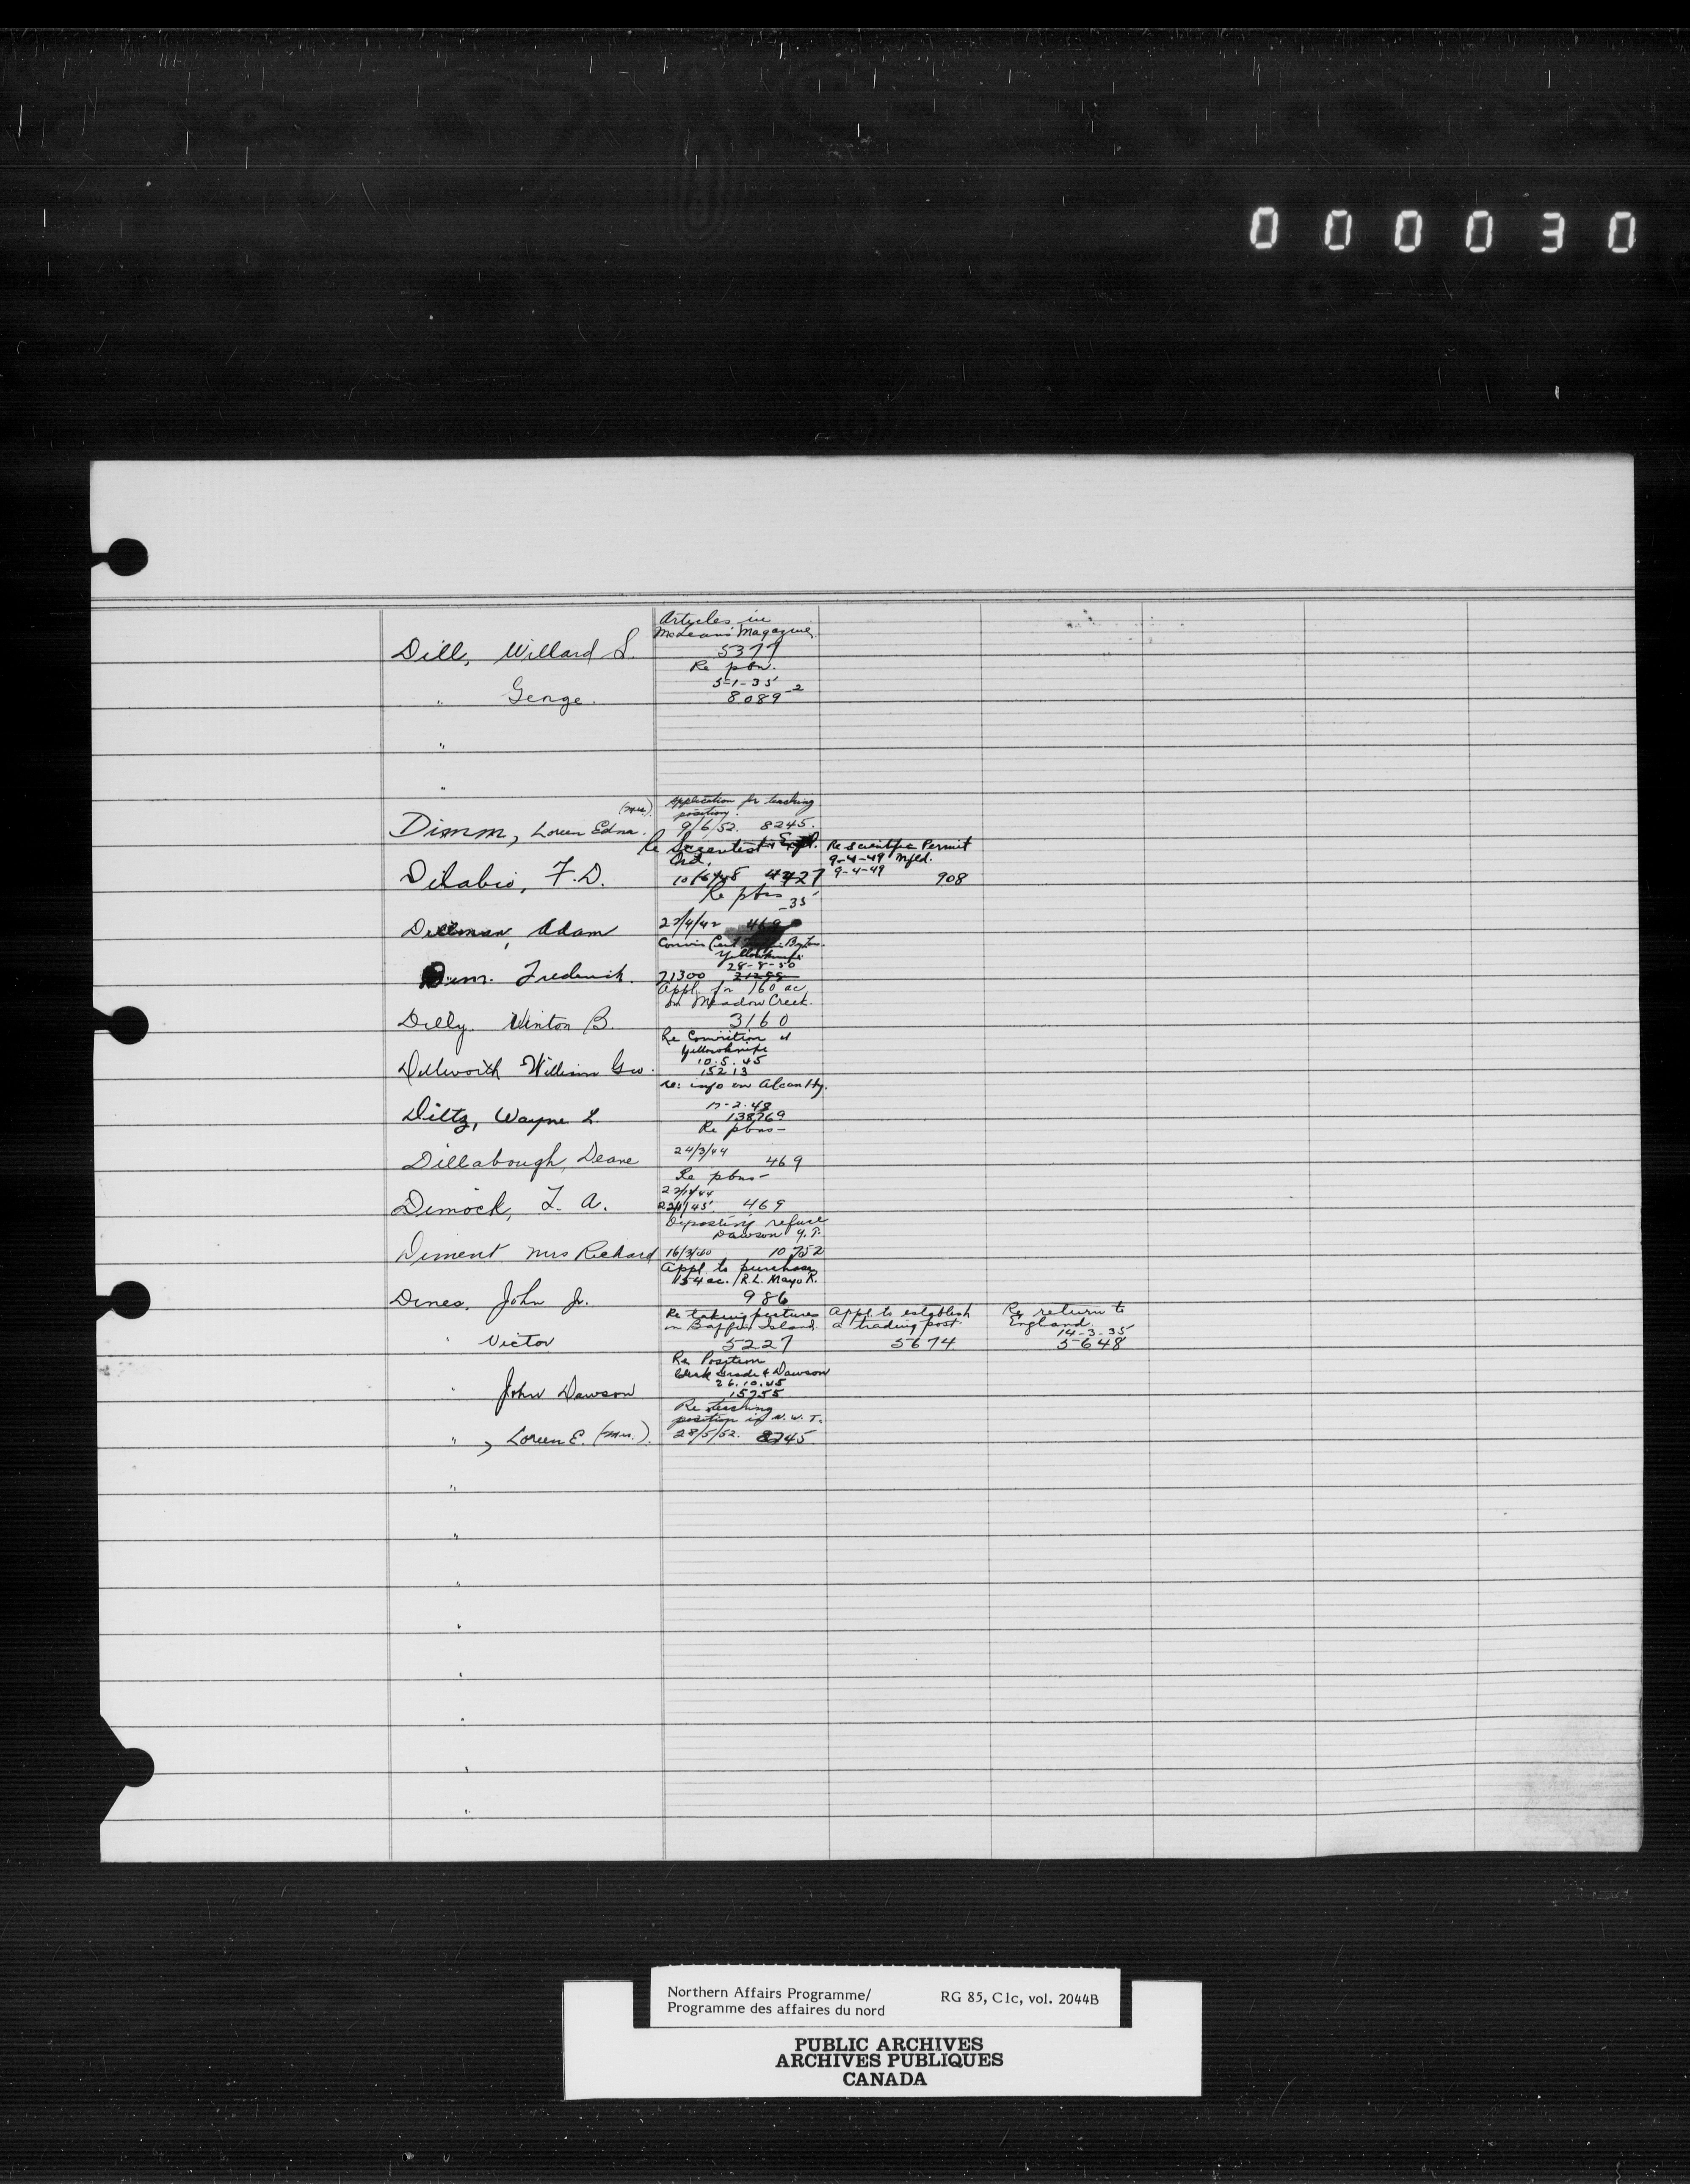 000030
Articles in
McLean's Magazine
Dill, Willard S. 5377
Re pbn.
5-1-35
" George. 8089-2
"
"
Application for teaching
(Mrs.) position.
Dimm, Loreen Edna. 9/6/52. 8245.
Re Scientist & Expl. Re scientific Permit
Ord. 9-4-49 Mfld.
Dilabio, F.D. 10/6/48 4427 9-4-49 908
Re pbns -35
Dillman, Adam 22/4/42 469
Convis
Yellowknife
28-8-50
Dim. Frederick. 21300
Appl. for 160 ac
on Meadow Creek.
Dilly. Winton B. 3160
Re Conviction at
Yellowknife
10.5.45
Dillworth William Geo. 15213
re: info on Alcan Hy.
17-2-48
Diltz, Wayne L. 138769
Re pbns-
24/3/44
Dillabough, Deane 469
Re pbns-
Dimock, L. A. 469
Depositing refuse
Dawson Y.T.
Diment Mrs Richard 16/3/40 10752
Appl. to purchase
154 ac. R.L. Mayo R.
Dines, John Jr. 986
Re taking pictures Appl. to establish Re return to
in Baffin Island. a trading post. England.
14-3-35
" Victor 5227 5674 5648
Re Position
Clerk Grade 4 Dawson
26.10.45
" John Dawson 15755
Re teaching
position in N.W.T.
" , Loreen E. (Mrs.). 28/5/52. 8245
"
"
"
"
"
"
"
"
Northern Affairs Programme/
Programme des affaires du nord
RG 85, C1c, vol. 2044B
PUBLIC ARCHIVES
ARCHIVES PUBLIQUES
CANADA